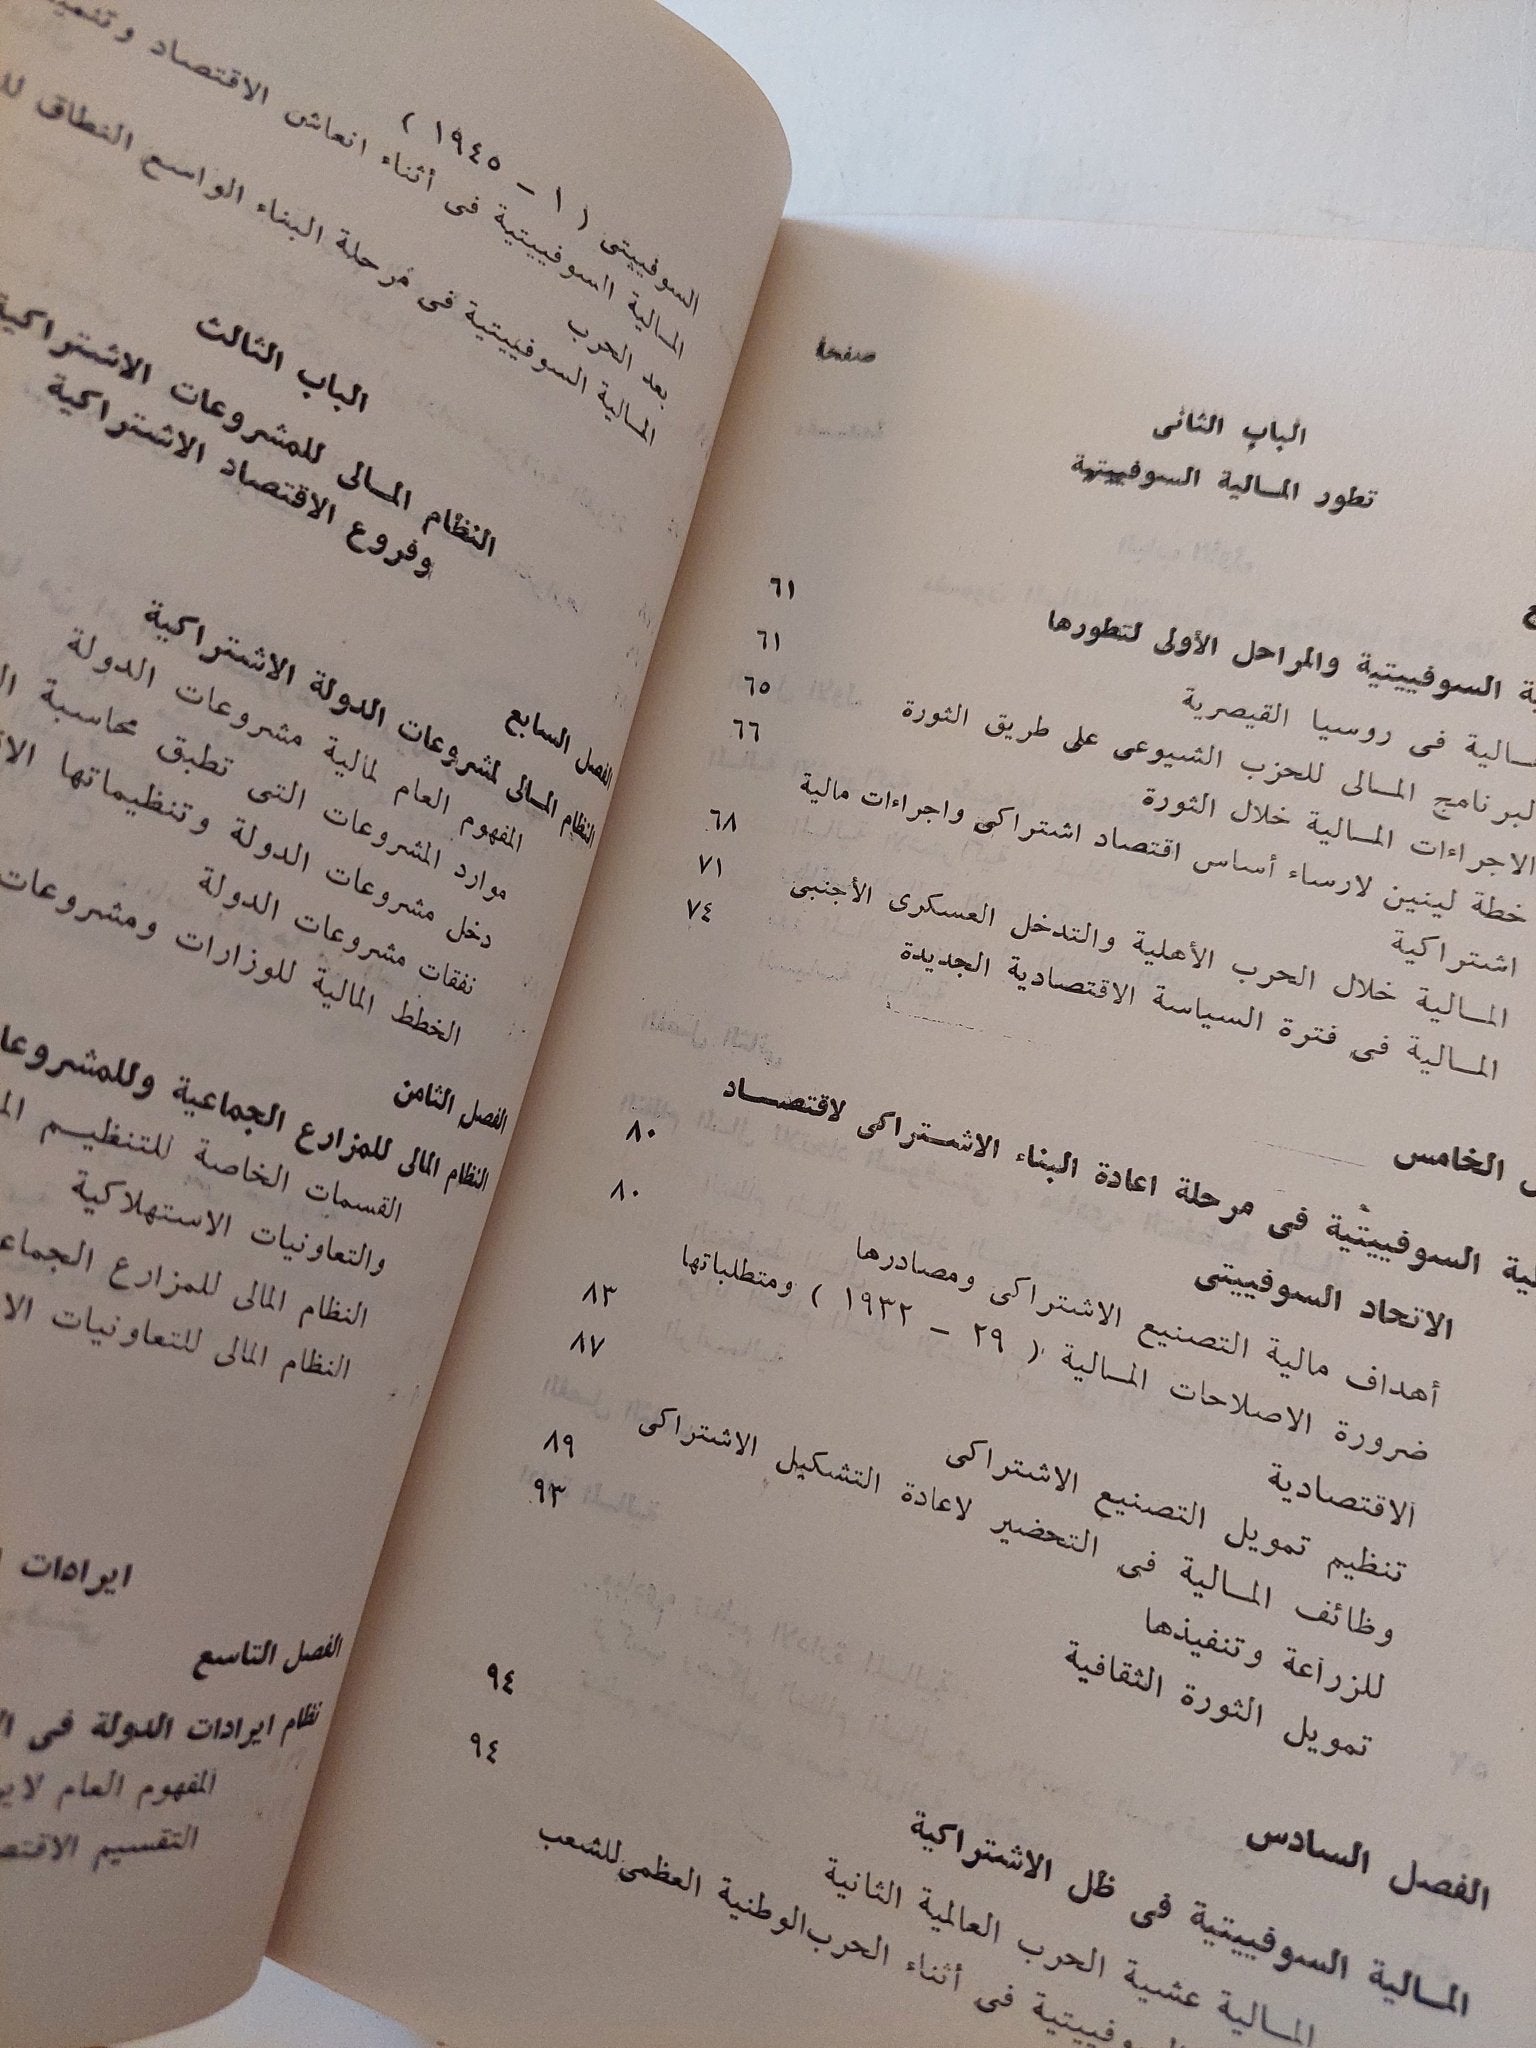 صفحة
الباب الثانى
تطور المالية السوفييتية
السوفييتية والمراحل الأولى لتطورها ٦١
فى روسيا القيصرية ٦١
البرنامج المالى للحزب الشيوعى على طريق الثورة ٦٥
الاجراءات المالية خلال الثورة ٦٦
خطة لينين لارساء أساس اقتصاد اشتراكى واجراءات مالية
اشتراكية ٦٨
المالية خلال الحرب الأهلية والتدخل العسكرى الأجنبى ٧١
المالية فى فترة السياسة الاقتصادية الجديدة ٧٤
الخامس
السوفييتية فى مرحلة اعادة البناء الاشتراكى لاقتصاد
الاتحاد السوفييتى ٨٠
أهداف مالية التصنيع الاشتراكى ومصادرها ٨٠
ضرورة الاصلاحات المالية ( ٢٩ – ١٩٣٢ ) ومتطلباتها
الاقتصادية ٨٣
تنظيم تمويل التصنيع الاشتراكى ٨٧
وظائف المالية فى التحضير لاعادة التشكيل الاشتراكى
للزراعة وتنفيذها ٨٩
تمويل الثورة الثقافية ٩٣
الفصل السادس
المالية السوفييتية فى ظل الاشتراكية ٩٤
المالية عشية الحرب العالمية الثانية ٩٤
فى أثناء الحرب الوطنية العظمى للشعب
السوفييتى ( ١ – ١٩٤٥ )
المالية السوفييتية فى أثناء انعاش الاقتصاد
بعد الحرب
المالية السوفييتية فى مرحلة البناء الواسع النطاق
الباب الثالث
النظام المالى للمشروعات الاشتراكية
وفروع الاقتصاد الاشتراكية
الفصل السابع
النظام المالى لمشروعات الدولة الاشتراكية
المفهوم العام لمالية مشروعات الدولة
موارد المشروعات التى تطبق محاسبة
دخل مشروعات الدولة وتنظيماتها
نفقات مشروعات الدولة
الخطط المالية للوزارات ومشروعات
الفصل الثامن
النظام المالى للمزارع الجماعية
القسمات الخاصة للتنظيم
والتعاونيات الاستهلاكية
النظام المالى للمزارع
النظام المالى للتعاونيات
ايرادات
الفصل التاسع
نظام ايرادات الدولة فى
المفهوم العام
التقسيم